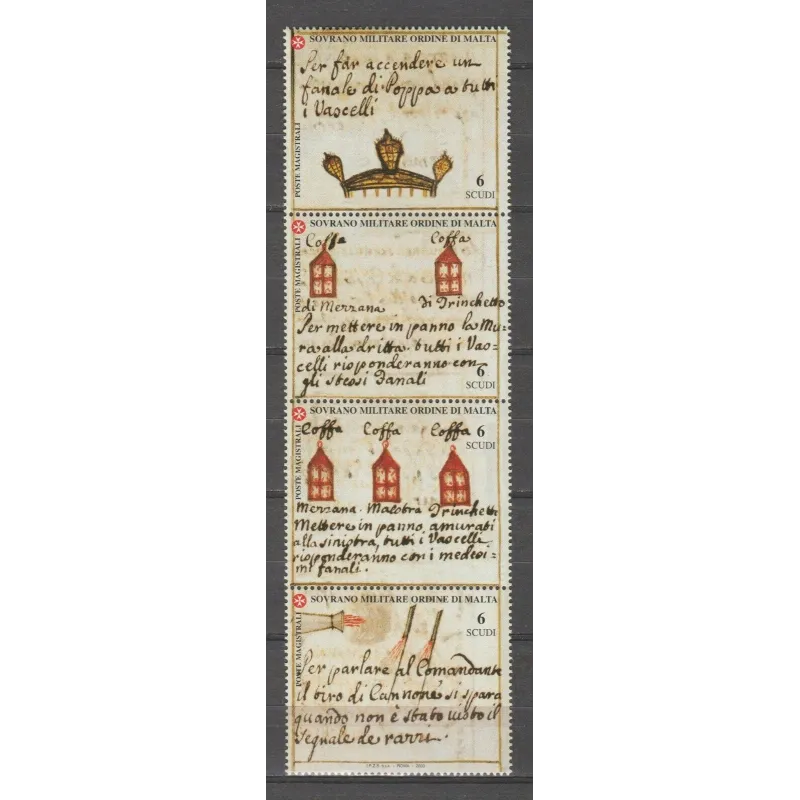 SOVRANO MILITARE ORDINE DI MALTA
Per far accendere un
fanale di Poppa a tutti
i Vascelli
POSTE MAGISTRALI
6
SCUDI
SOVRANO MILITARE ORDINE DI MALTA
POSTE MAGISTRALI
Coffa Coffa
di Mezzana di Trinchetto
Per mettere in panno la Mu-
ra alla dritta tutti i Vas=
celli risponderanno con
gli stessi Fanali
6
SCUDI
SOVRANO MILITARE ORDINE DI MALTA
POSTE MAGISTRALI
Coffa Coffa Coffa
6
SCUDI
Mezzana. Maestra Trinchett
Mettere in panno amurati
alla sinistra, tutti i Vascelli
risponderanno con i medesi-
mi fanali.
SOVRANO MILITARE ORDINE DI MALTA
POSTE MAGISTRALI
6
SCUDI
Per parlare al Comandante
il tiro di Cannone si spara
quando non è stato visto il
segnale de razzi.
I.P.Z.S. S.p.A. - ROMA - 2003